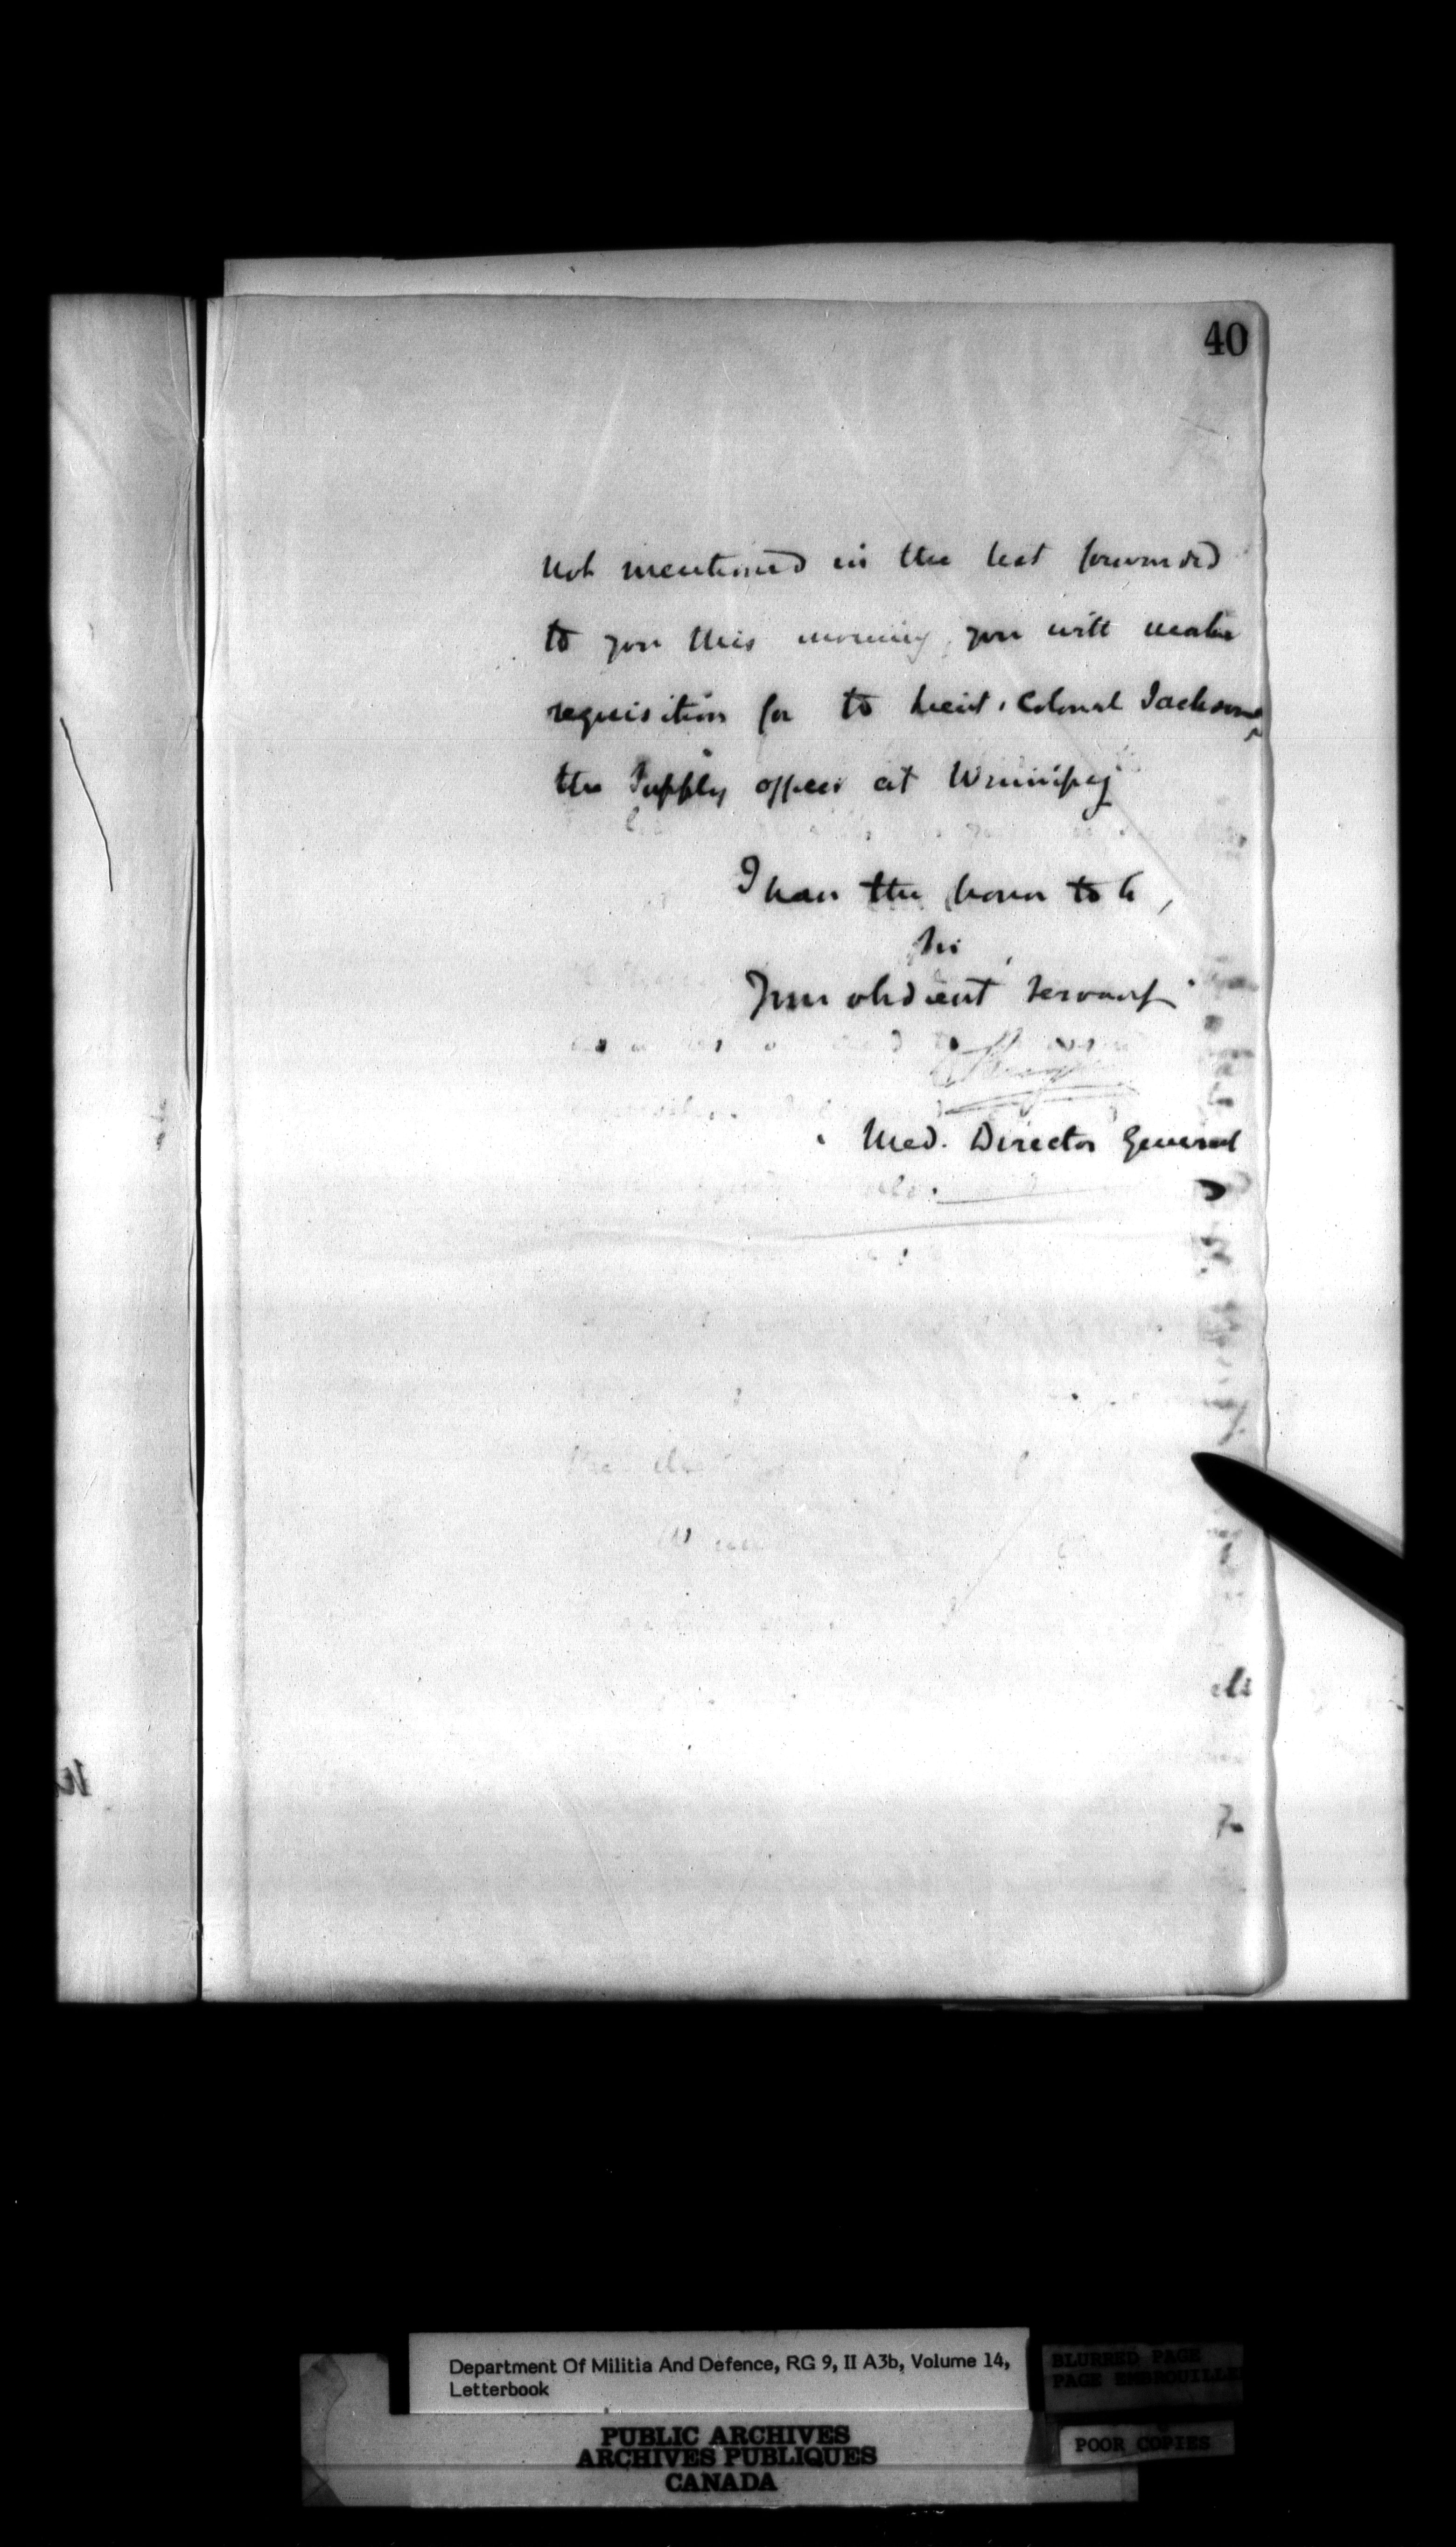 40
not mentioned in the list forwarded
to you this morning, you will make
requisition for to Lieut. Colonel Jackson
the Supply officer at Winnipeg
I have the honor to be,
Sir
Your obedient servant
Med. Director General
Department Of Militia And Defence, RG 9, II A3b, Volume 14,
Letterbook
BLURRED PAGE
PAGE EMBROUILLE
POOR COPIES
PUBLIC ARCHIVES
ARCHIVES PUBLIQUES
CANADA